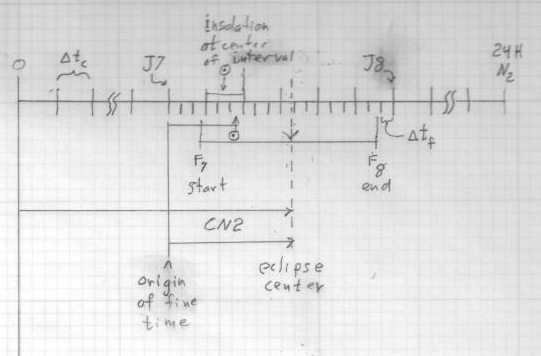 insolation
at center
of interval
0
Δtc
J7
J8
24H
N2
Δtf
F7
start
F8
end
CN2
origin
of fine
time
eclipse
center